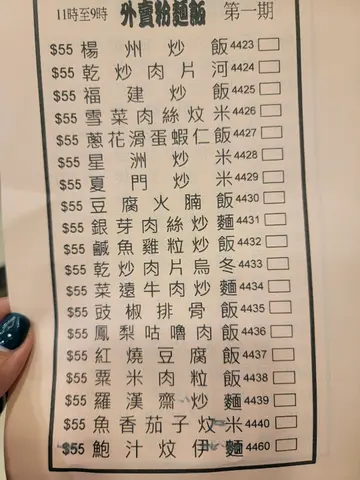 11時至9時 外賣粉麵飯 第一期
$55 楊州炒飯 4423
$55 乾炒肉片河 4424
$55 福建炒飯 4425
$55 雪菜肉絲炆米 4426
$55 蔥花滑蛋蝦仁飯 4427
$55 星洲炒米 4428
$55 夏門炒米 4429
$55 豆腐火腩飯 4430
$55 銀芽肉絲炒麵 4431
$55 鹹魚雞粒炒飯 4432
$55 乾炒肉片烏冬 4433
$55 菜遠牛肉炒麵 4434
$55 豉椒排骨飯 4435
$55 鳳梨咕嚕肉飯 4436
$55 紅燒豆腐飯 4437
$55 粟米肉粒飯 4438
$55 羅漢齋炒麵 4439
$55 魚香茄子炆米 4440
$55 鮑汁炆伊麵 4460